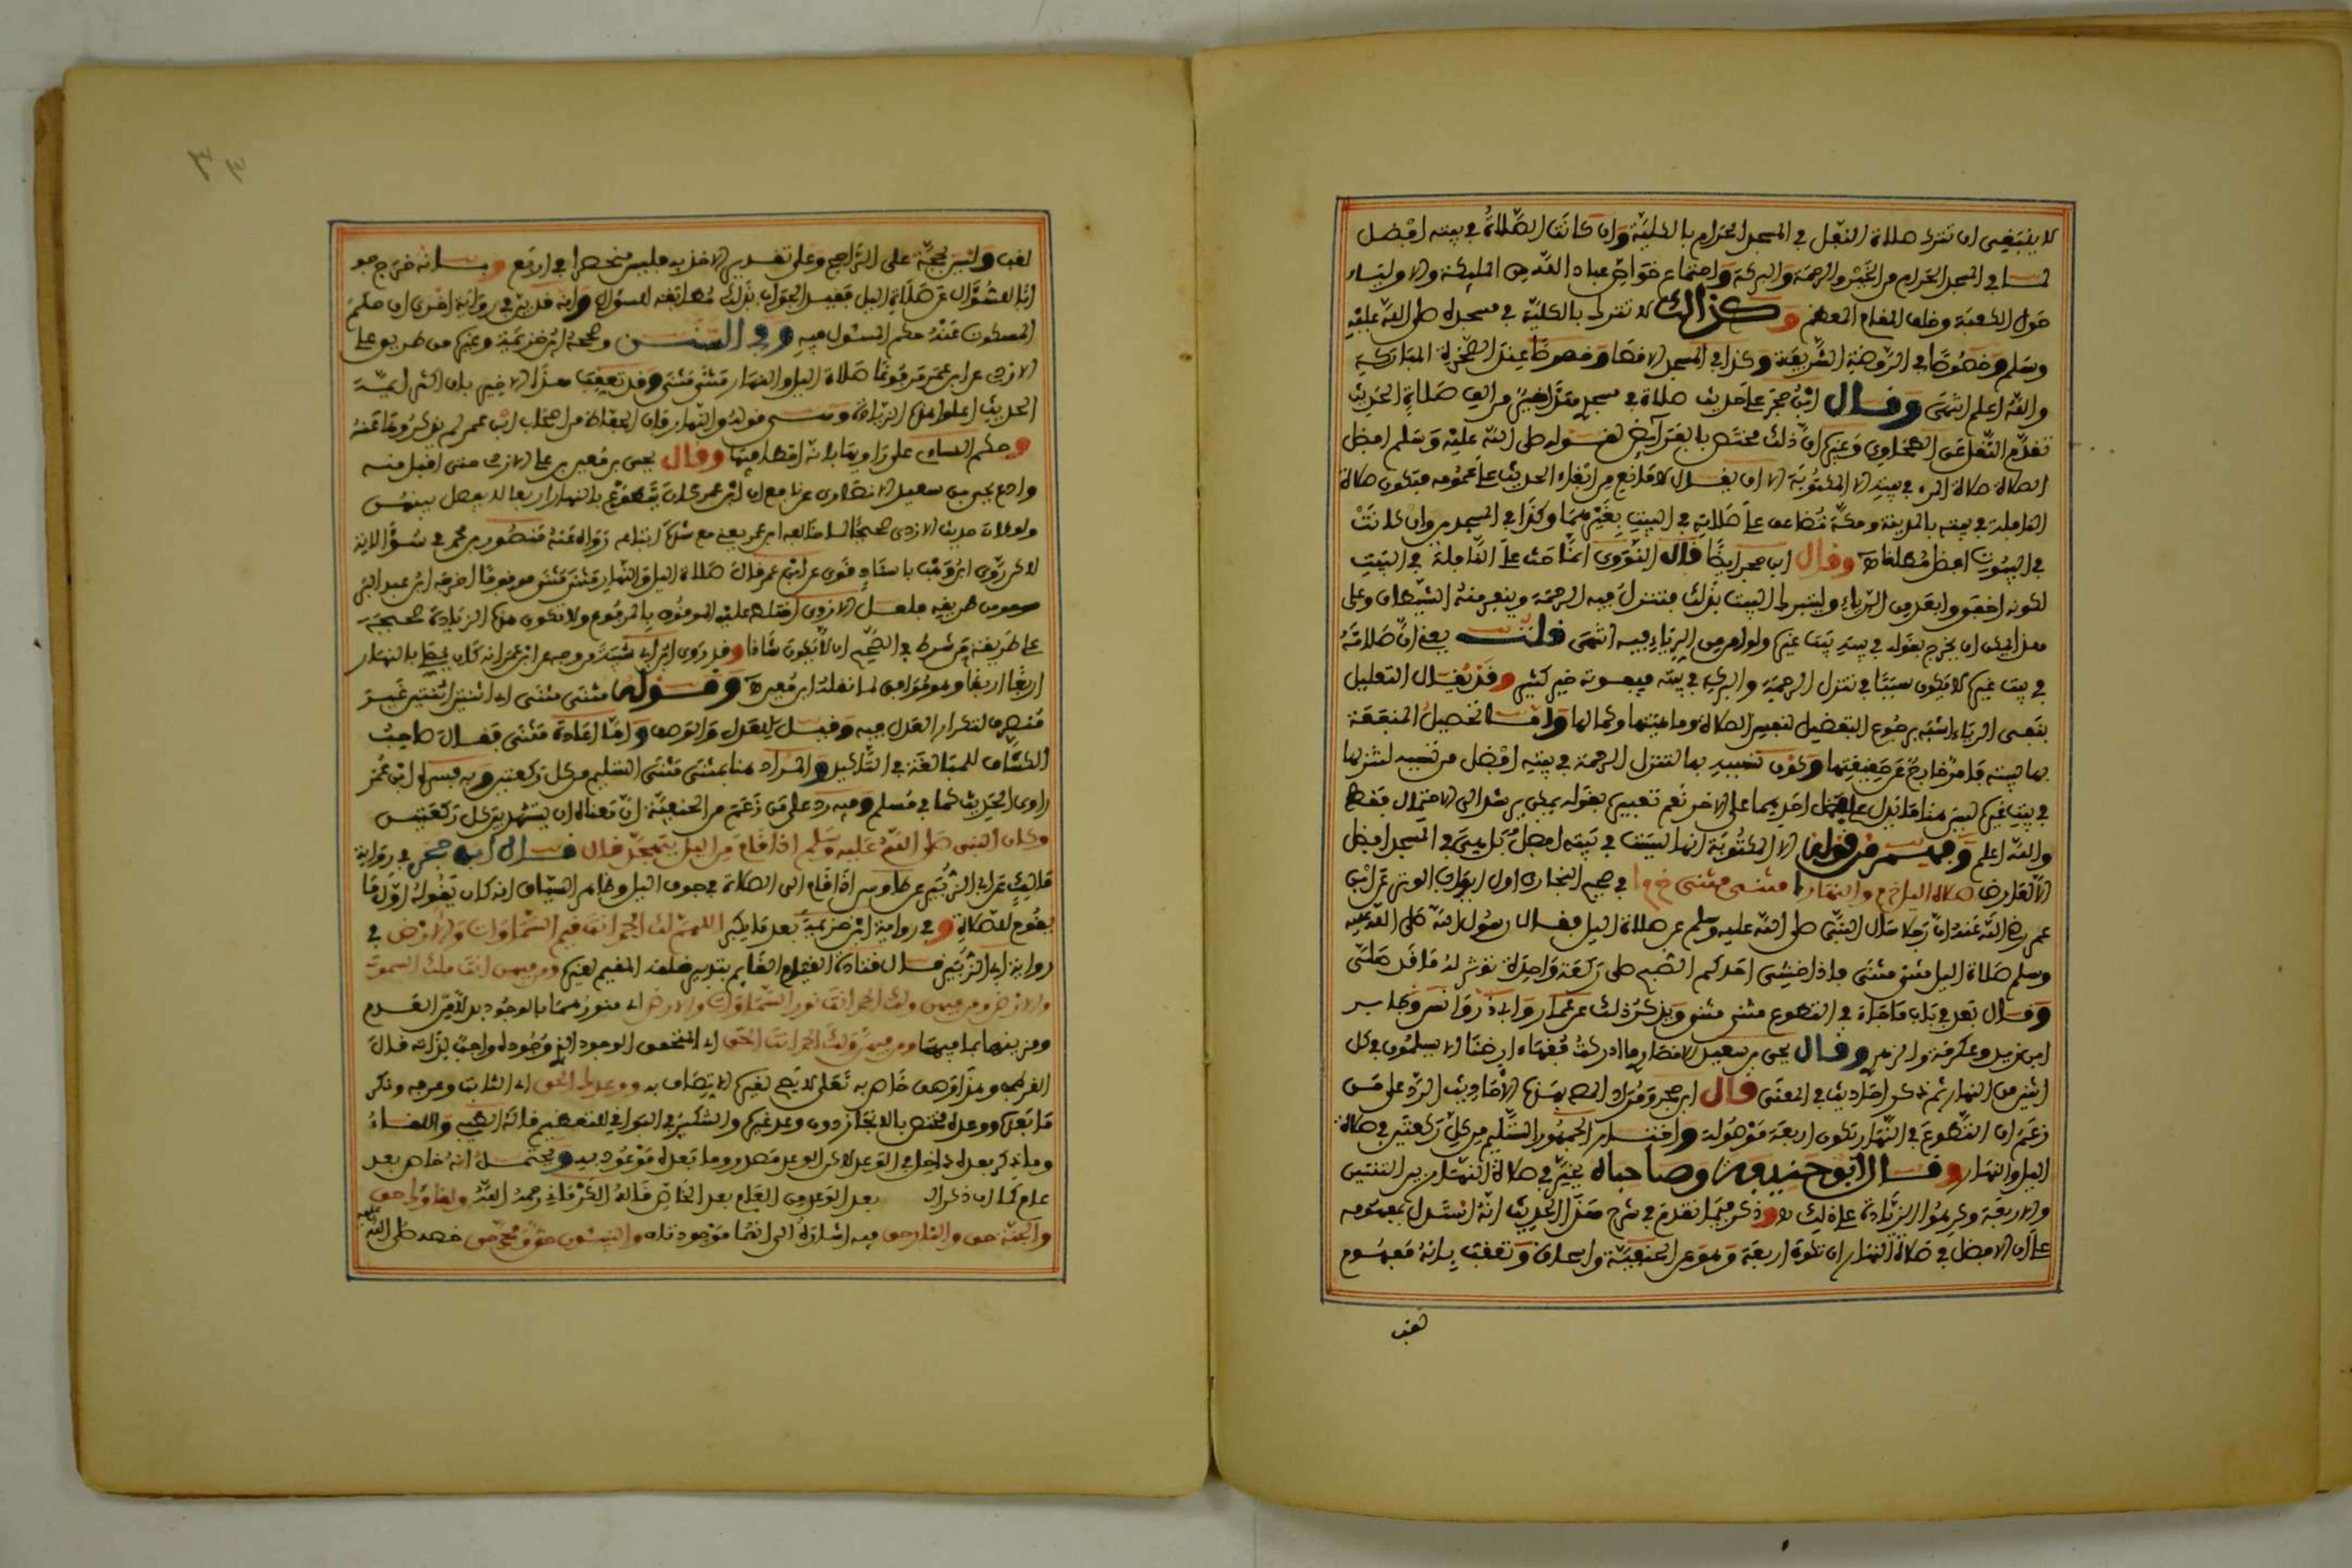 لا ينبغي ان تترك صلاة النفل في المسجد الحرام بالكلية وان كانت الصلاة في بيته افضل
لما في المسجد الحرام من الخير والرحمة والبركة واجتماع خواص عباد الله من المليكة والاولياء
حول الكعبة وخلف المقام المعظم وكذالك لا تترك بالكلية في مسجده صلى الله عليه
وسلم وخصوصا في الروضة الشريفة وكذا في المسجد الاقصا وخصوصا عند الصخرة المباركة
والله اعلم انتهى وقال ابن حجر على حديث صلاة في مسجد هذا خير من الف صلاة الحديث
تقدم النقل عن الطحاوي وغيره ان ذلك مختص بالفرايض لقوله صلى الله عليه وسلم افضل
الصلاة صلاة المرء في بيته الا المكتوبة الا ان يقال لا مانع من ابقاء الحديث على عمومه فتكون صلاة
النافلة في بيته بالمدينة ومكة تضاعف على صلاته في البيت بغيرهما وكذا في المسجدين وان كانت
في البيوت افضل مطلقا وقال ابن حجر ايضا قال النووي انما حث على النافلة في البيت
لكونه اخفى وابعد من الرياء وليتبرك البيت بذلك فتنزل فيه الرحمة وينفر منه الشيطان وعلى
هذا يمكن ان يخرج بقوله في بيته بيت غيره ولو امن من الرياء فيه انتهى قلت يعني ان صلاته
في بيت غيره لا يكون سببا في تنزل الرحمة والبركة في بيته فيفوته خير كثير وقد يقال التعليل
بنفي الرياء اشبه برجوع التفضيل لنفس الصلاة وماهيتها وكمالها واما تحصيل المنفعة
بها لبيته فامر خارج عن حقيقتها وكون تسببه بها لتنزل الرحمة في بيته افضل من تسببه لتنزلها
في بيت غيره ليس هنا ما يدل على فضل احديهما على الاخر نعم تعبيره بقوله يمكن يرشد الى الاحتمال فقط
والله اعلم وفهم من قوله الا المكتوبة انها ليست في بيته افضل بل هي في المسجد افضل
الا لعارض صلاة الليل والنهار مثنى مثنى في صحيح البخاري اول ابواب الوتر عن ابن
عمر رضي الله عنه ان رجلا سال النبي صلى الله عليه وسلم عن صلاة الليل فقال رسول الله صلى الله عليه
وسلم صلاة الليل مثنى مثنى فاذا خشى احدكم الصبح صلى ركعة واحدة توتر له ما قد صلى
وقال بعد في باب ما جاء في التطوع مثنى مثنى ويذكر ذلك عن عمار وابي ذر وانس وجابر
ابن زيد وعكرمة والزهري وقال يحيى بن سعيد الانصاري ما ادركت فقهاء ارضنا الا يسلمون في كل
اثنين من النهار ثم ذكر احاديث في المعنى قال ابن حجر ومراد المصنف بهذه الاحاديث الرد على من
زعم ان التطوع في النهار تكون اربعة موصولة واختار الجمهور التسليم من كل ركعتين في صلاة
الليل والنهار وقال ابو حنيفة وصاحباه يخير في صلاة النهار بين الثنتين
والاربعة وكرهوا الزيادة على ذلك وذكر فيما تقدم في شرح هذا الحديث انه استدل بمفهومه
على ان الافضل في صلاة النهار ان تكون اربعة وهو عن الحنفية واسحاق وتعقب بانه مفهوم
لقب
لقب وليس بحجة على الراجح وعلى تقدير الاخذ به فليس منحصرا في اربع وبانه خرج جو
ابا لسؤال عن صلاة الليل فقيد الجواب بذلك مطابقة للسؤال وانه قد بين في رواية اخرى ان حكم
المسكوت عنه حكم المسئول فيه وفي السنن وصححه ابن خزيمة وغيره من طريق علي
الازدي عن ابن عمر مرفوعا صلاة الليل والنهار مثنى مثنى وقد تعقب هذا الاخير بان اكثر ايمة
الحديث اعلوا هذه الزيادة وهي قوله والنهار فان الحفاظ من اصحاب ابن عمر لم يذكروها عنه
وحكم النساي على راويها بانه اخطا فيها وقال يحيى بن معين من علي الازدي حتى اقبل منه
وادع يحيى بن سعيد الانصاري عن نافع ان ابن عمر كان يتطوع بالنهار اربعا لا يفصل بينهن
ولو كان حديث الازدي صحيحا لما خالفه ابن عمر يعني مع شدة اتباعه رواه عنه منصور بن محمد في سؤالاته
لاكن روى ابن وهب باسناد قوي عن ابن عمر قال صلاة الليل والنهار مثنى مثنى موقوفا اخرجه ابن عبد البر
من طريقه فلعل الازدي اختلط عليه الموقوف بالمرفوع ولا تكون هذه الزيادة صحيحة
على طريقة من شرط في الصحيح ان لا يكون شاذا وقد روى ابن ابي شيبة من وجه عن ابن عمر انه كان يصلي بالنهار
اربعا اربعا وهو موافق لما نقله ابن معين وقوله مثنى مثنى اي اثنين اثنين غير
منصرف لتكرار العدل فيه وقيل للعدل والوصف واما اعادة مثنى فقال صاحب
الكشاف للمبالغة في التاكيد والمراد هنا بمثنى مثنى التسليم من كل ركعتين وبه فسره ابن عمر
راوي الحديث كما في مسلم وفيه رد على من زعم من الحنفية ان معناه ان يتشهد بين كل ركعتين
وكان النبي صلى الله عليه وسلم اذا قام من الليل يتهجد قال قال ابن حجر في رواية
مالك عن ابي الزبير عن طاوس اذا قام الى الصلاة في جوف الليل وظاهر السياق انه كان يقوله اول ما
يقوم للصلاة وفي رواية ابن خزيمة بعد ما يكبر اللهم لك الحمد انت قيم السماوات والارض في
رواية ابي الزبير قال قتادة القيام القايم بتدبير خلقه المقيم لغيره ومن فيهن انت ملك السموت
والارض ومن فيهن ولك الحمد انت نور السماوات والارض اي منورهما بالوجود بدلا من العدم
ومزينهما بما فيهما ومن فيهن ولك الحمد انت الحق اي المتحقق الوجود الذي وجوده واجب لذاته قال
القرطبي وهذا وصف خاص به تعلى لا ينبغي لغيره الاتصاف به ووعدك الحق اي الثابت وعرفه ونكر
ما بعده ووعده مختص بالانجاز دون وعد غيره والتنكير في البواقي للتعظيم قاله الطيبي واللقاء
وما ذكر بعده داخل في الوعد لاكن الوعد مصدر وما بعده موعود به ويحتمل انه خاص بعد
عام كما ان ذكر القول بعد الوعد من العام بعد الخاص قاله الكرماني رحمه الله ولقاؤك حق
والجنة حق والنار حق فيه اشارة الى انهما موجودتان والنبيئون حق ومحمد حق خصه صلى الله عليه